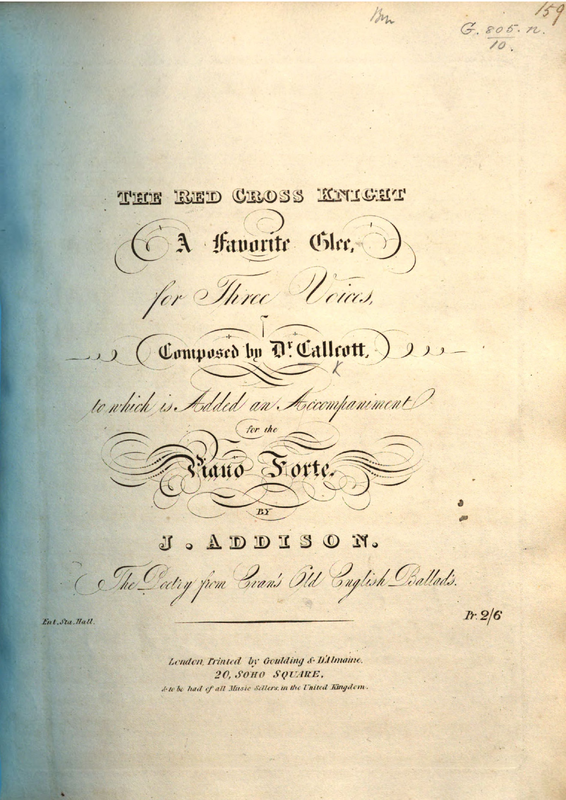 159
G. 805.n.
10.
THE RED CROSS KNIGHT
A Favorite Glee,
for Three Voices,
Composed by Dr. Callcott,
to which is Added an Accompaniment
for the
Piano Forte.
BY
J. ADDISON.
The Poetry from Evan's Old English Ballad's.
Ent. Sta. Hall.
Pr. 2/6
London, Printed by Goulding & D'Almaine.
20, SOHO SQUARE,
& to be had of all Music Sellers in the United Kingdom.